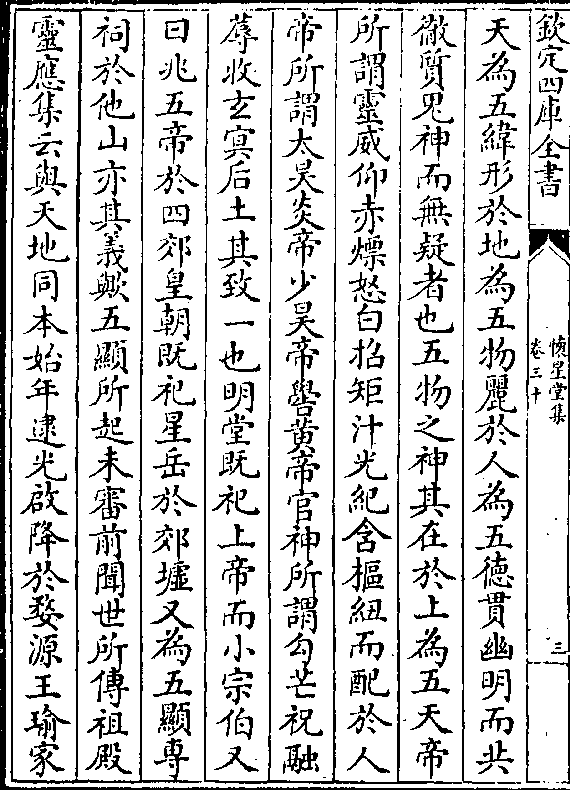 欽定四庫全書
懷星堂集
卷三十
三
天為五緯形於地為五物麗於人為五德貫幽明而共
徹質鬼神而無疑者也五物之神其在於上為五天帝
所謂靈威仰赤熛怒白招矩汁光紀含樞紐而配於人
帝所謂太昊炎帝少昊帝嚳黃帝官神所謂勾芒祝融
蓐收玄冥后土其致一也明堂既祀上帝而小宗伯又
曰兆五帝於四郊皇朝既祀星岳於郊墟又為五顯專
祠於他山亦其義歟五顯所起未審前聞世所傳祖殿
靈應集云與天地同本始年逮光啟降於婺源王瑜家